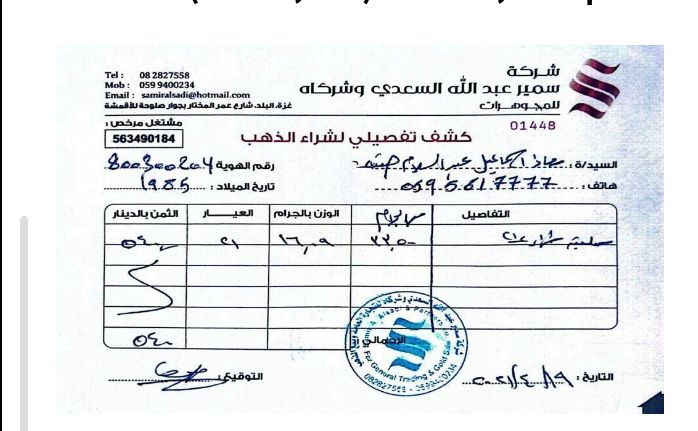 شركة
سمير عبد الله السعدي وشركاه
للمجوهرات
Tel : 08 2827558
Mob : 059 9400234
Email : samiralsadi@hotmail.com
غزة، البلد، شارع عمر المختار بجوار صلوحة للأقمشة
مشتغل مرخص :
563490184
01448
كشف تفصيلي لشراء الذهب
السيد/ة :
رقم الهوية
هاتف : 059 5617777
تاريخ الميلاد : 1985
التفاصيل الوزن بالجرام العيـــار الثمن بالدينار
٢٣,٥٠ ١٦,٠٩ ٢١ ٥٤٠
الإجمالي
٥٤٠
For General Trading & Gold Sale
082827558 - 0599400234
التاريخ : ٢٠٢١/٤/١٩
التوقيع